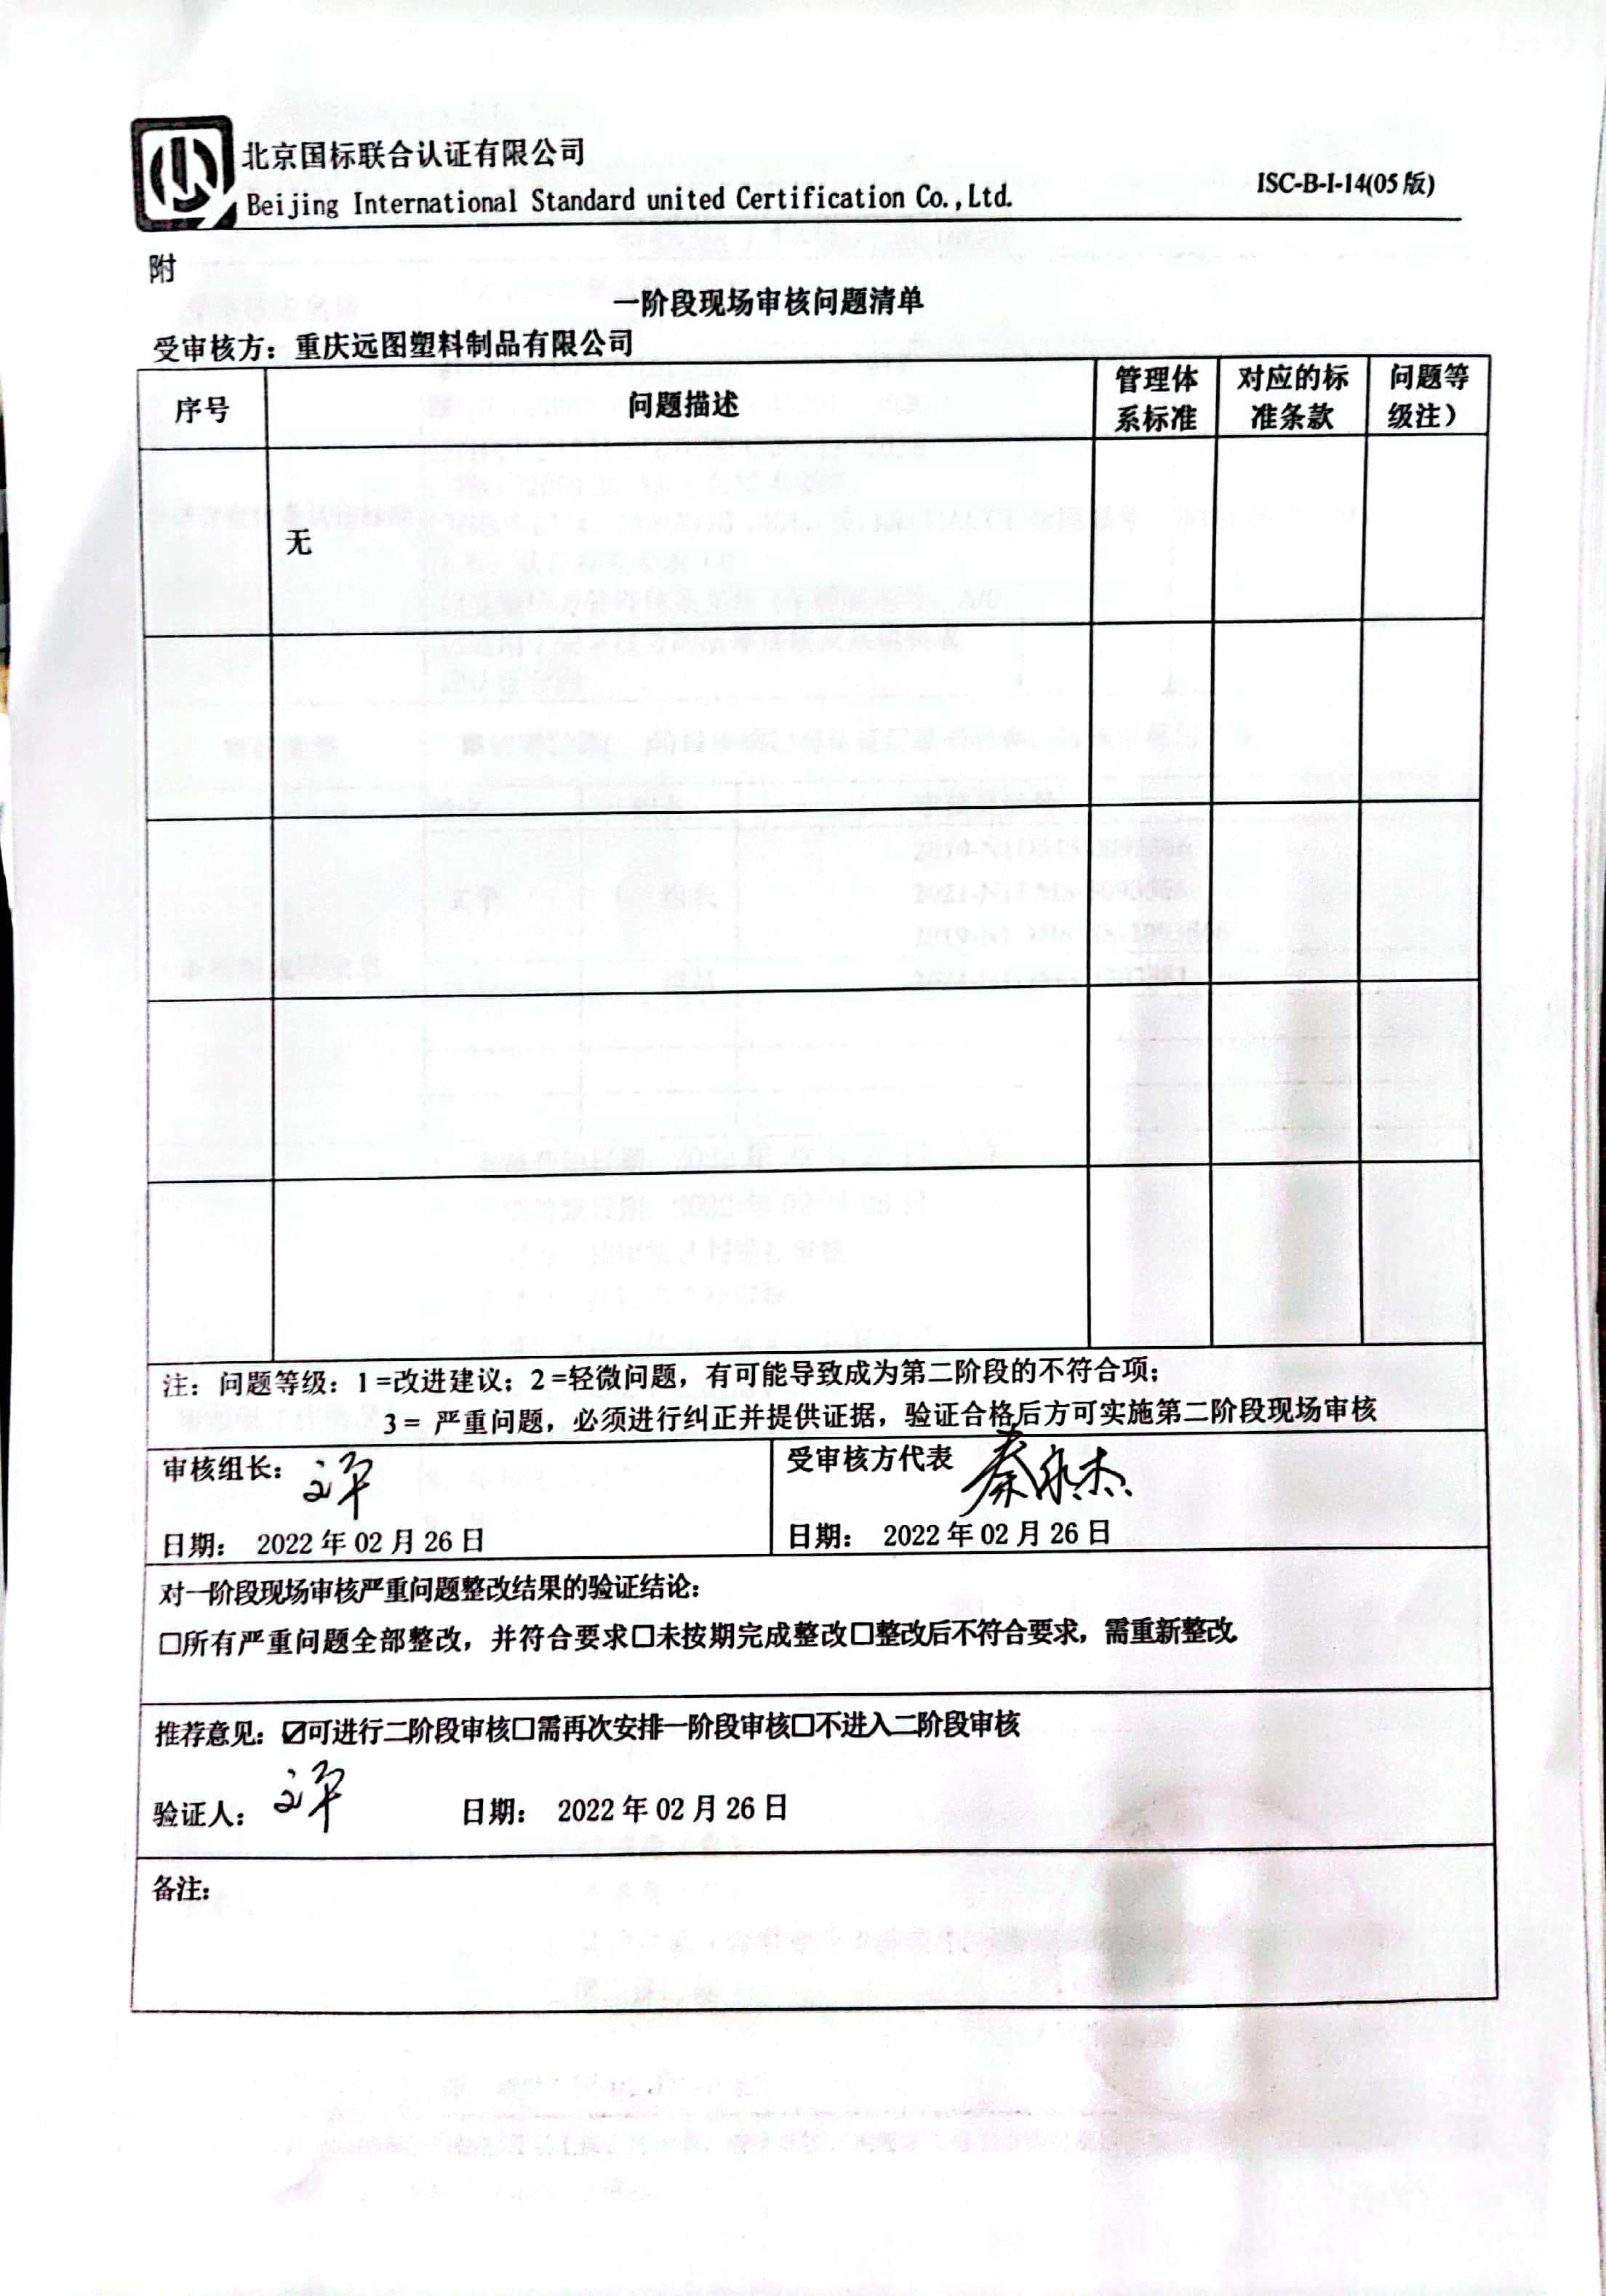 北京国标联合认证有限公司
Beijing International Standard united Certification Co.,Ltd.
ISC-B-I-14(05版)
附
一阶段现场审核问题清单
受审核方：重庆远图塑料制品有限公司
序号 问题描述 管理体系标准 对应的标准条款 问题等级注）
无
注：问题等级：1=改进建议；2=轻微问题，有可能导致成为第二阶段的不符合项；
3= 严重问题，必须进行纠正并提供证据，验证合格后方可实施第二阶段现场审核
审核组长：文平
受审核方代表 秦永杰
日期： 2022年02月26日
日期： 2022年02月26日
对一阶段现场审核严重问题整改结果的验证结论：
□所有严重问题全部整改，并符合要求□未按期完成整改□整改后不符合要求，需重新整改.
推荐意见：☑可进行二阶段审核□需再次安排一阶段审核□不进入二阶段审核
验证人：文平 日期： 2022年02月26日
备注：